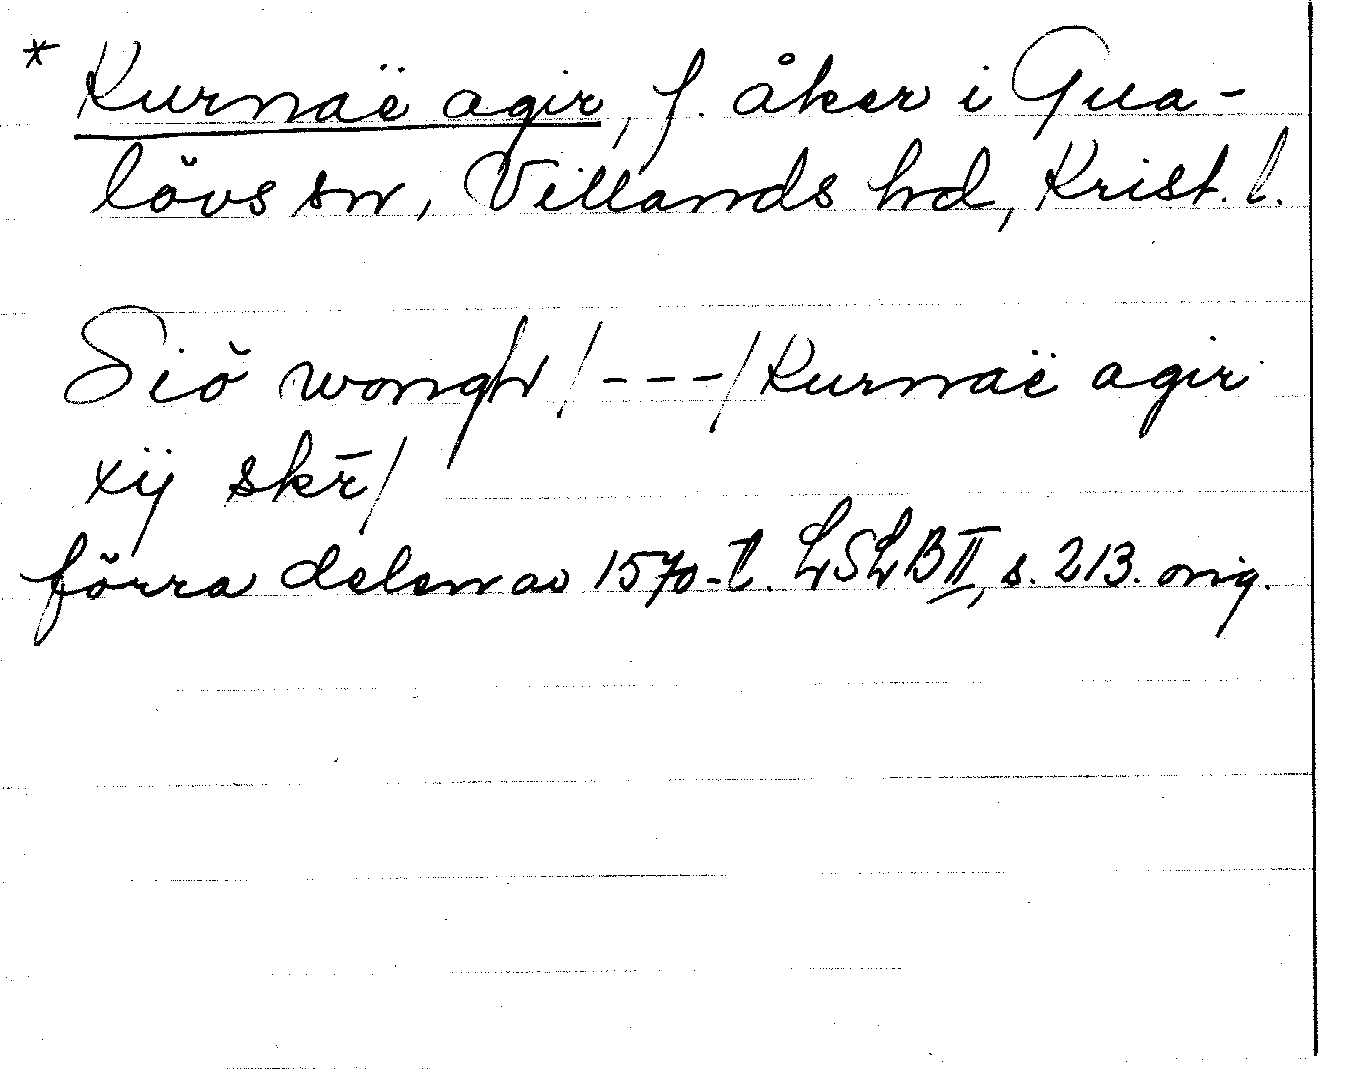 * Kurnaë agir, f. åker i Gua-
lövs sn, Villands hd, Krist. l.
Siö wongh / - - - / Kurnaë agir
xij skr̄ /
förra delen av 1570-t. LSLB II, s. 213. orig.